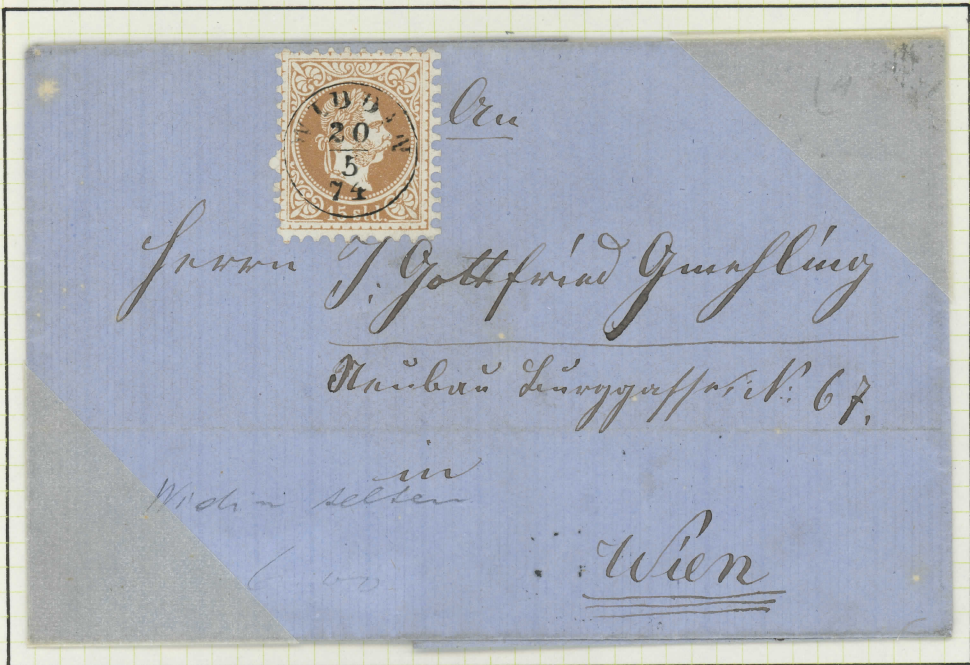 WIDDIN
20
5
74
15 sld.
An
Herrn J. Gottfried Gmehling
Neubau Burggasse N: 67.
in
Widin selten
Wien